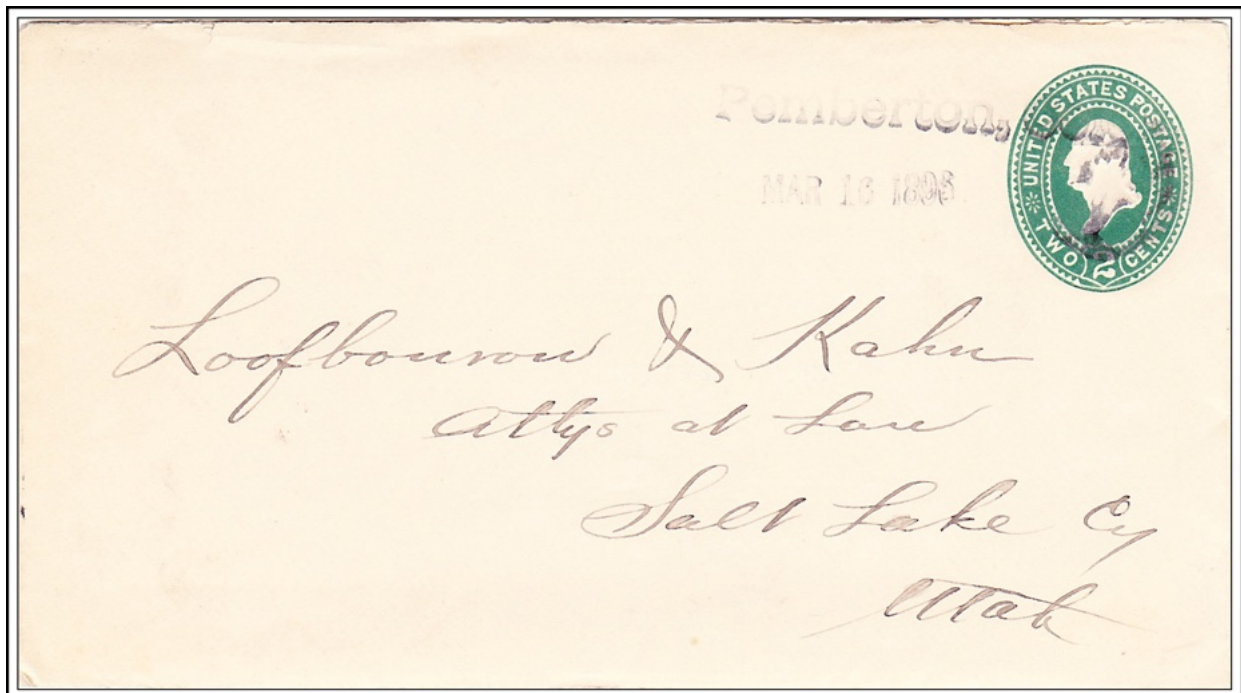 Pemberton,
MAR 16 1896
UNITED STATES POSTAGE
TWO 2 CENTS
Loofbourow & Kahn
Attys at Law
Salt Lake Cy
Utah